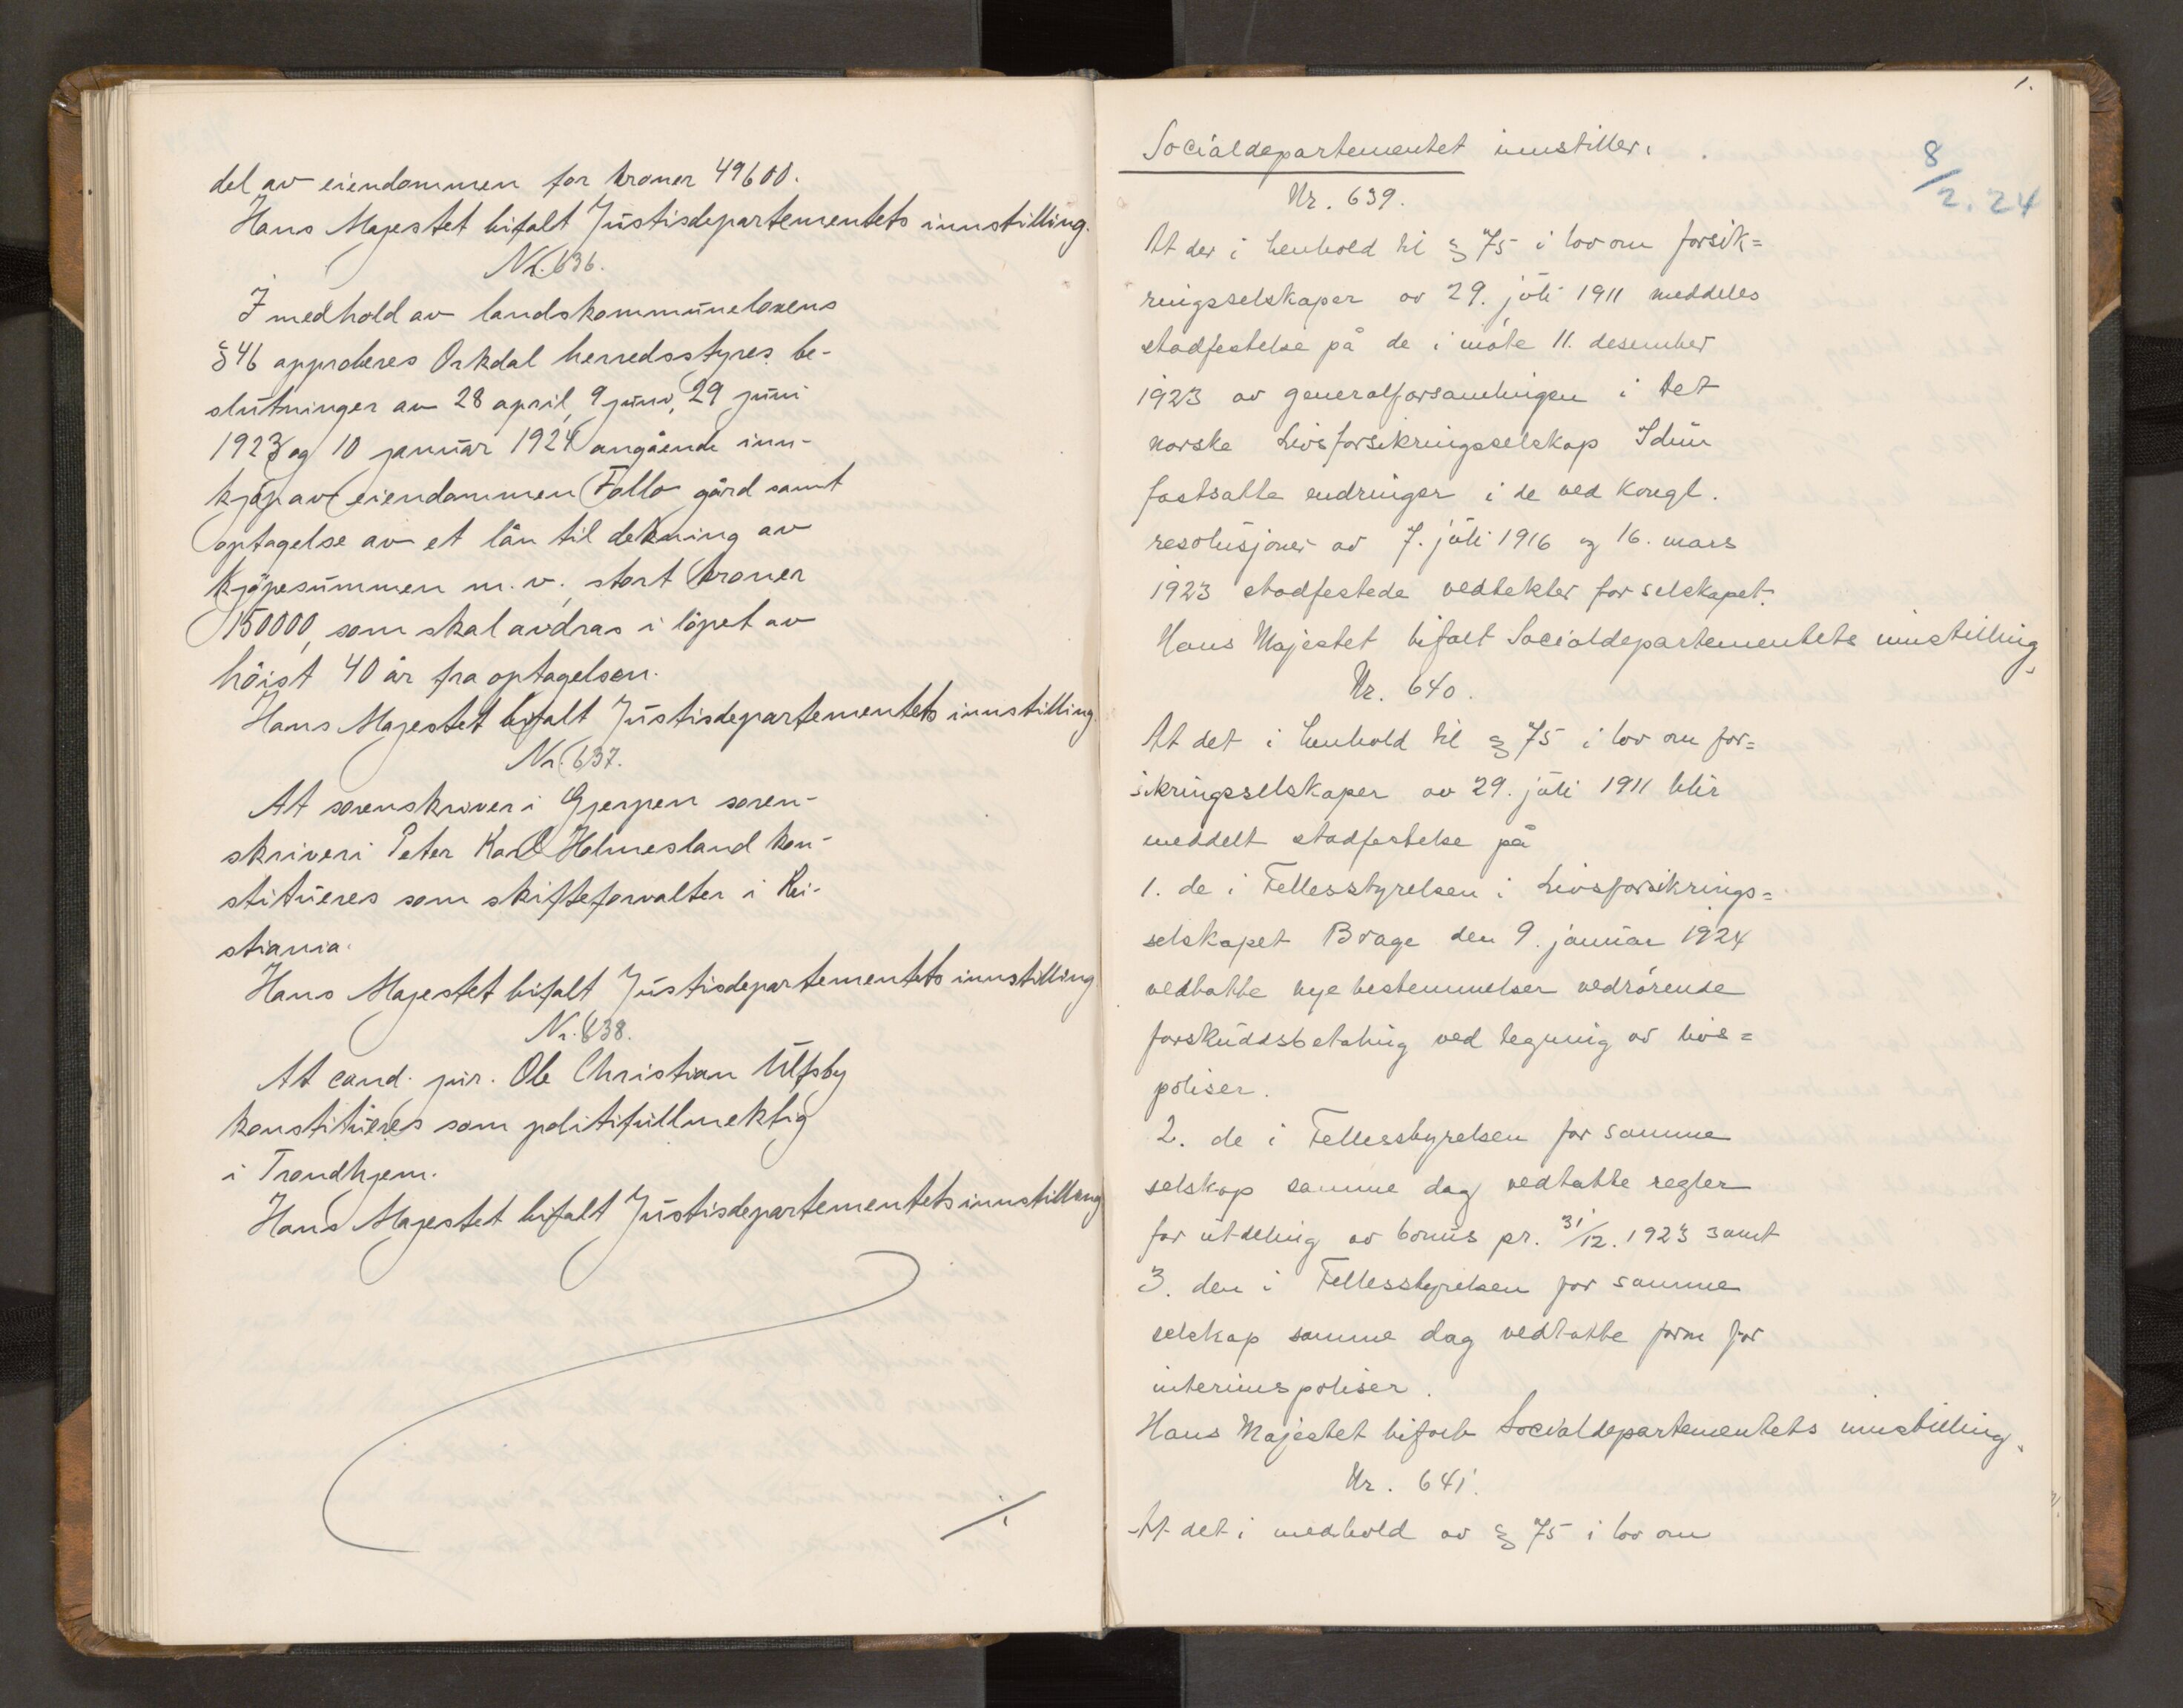 del av eiendommen for kroner 49600.
Hans Majestet bifalt Justisdepartementets innstilling.
Nr. 636.
I medhold av landskommunelovens
§ 46 approberes Orkdal herredsstyres be-
slutninger av 28 april, 9 juni, 29 juni
1923 og 10 januar 1924 angående inn-
kjöp av eiendommen Follo gård samt
optagelse av et lån til dekning av
kjöpesummen m.v., stort kroner
150000, som skal avdras i löpet av
höist 40 år fra optagelsen.
Hans Majestet bifalt Justisdepartementets innstilling.
Nr. 637.
At sorenskriver i Gjerpen soren-
skriveri Peter Karl Holmesland kon-
stitueres som skifteforvalter i Kri-
stiania.
Hans Majestet bifalt Justisdepartementets innstilling
Nr. 638.
At cand. jur. Ole Christian Ulfsby
konstitueres som politifullmektig
i Trondhjem.
Hans Majestet bifalt Justisdepartementets innstilling
1.
8/2. 24
Socialdepartementet innstiller.
Nr. 639.
At der i henhold til § 75 i lov om forsik=
ringsselskaper av 29. juli 1911 meddeles
stadfestelse på de i möte 11. desember
1923 av generalforsamlingen i Det
norske Livsforsikringsselskap Idun
fastsatte endringer i de ved kongl.
resolusjoner av 7. juli 1916 og 16. mars
1923 stadfestede vedtekter for selskapet.
Hans Majestet bifalt Socialdepartementets innstilling.
Nr. 640.
At det i henhold til § 75 i lov om for=
sikringsselskaper av 29. juli 1911 blir
meddelt stadfestelse på
1. de i Fellesstyrelsen i Livsforsikrings=
selskapet Brage den 9. januar 1924
vedtatte nye bestemmelser vedrörende
forskuddsbetaling ved tegning av livs=
poliser.
2. de i Fellesstyrelsen for samme
selskap samme dag vedtatte regler
for utdeling av bonus pr. 31/12. 1923 samt
3. den i Fellesstyrelsen for samme
selskap samme dag vedtatte form for
interimspoliser.
Hans Majestet bifalt Socialdepartementets innstilling.
Nr. 641.
At det i medhold av § 75 i lov om